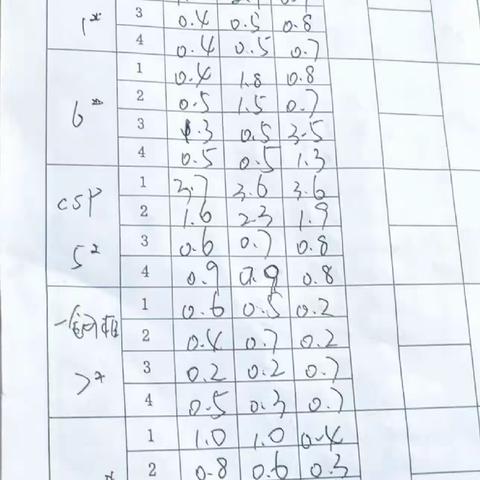 1# 3 0.4 0.5 0.8
4 0.4 0.5 0.7
1 0.4 1.8 0.8
6# 2 0.5 1.5 0.7
3 1.3 0.5 3.5
4 0.5 0.5 1.3
1 3.7 3.6 3.6
CSP 2 1.6 2.3 1.9
5# 3 0.6 0.7 0.8
4 0.9 0.9 0.8
1 0.6 0.5 0.2
2 0.4 0.7 0.2
7# 3 0.2 0.2 0.7
4 0.5 0.3 0.7
1 1.0 1.0 0.4
2 0.8 0.6 0.3